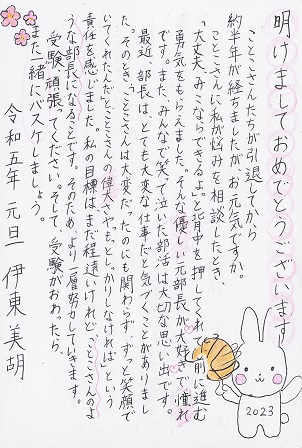 明けましておめでとうございます
ことこさんたちが引退してから
約半年が経ちましたが、お元気ですか。
ことこさんに私が悩みを相談したとき
「大丈夫、みこならできるよ」と背中を押してくれて前に進む
勇気をもらえました。そんな優しい元部長が大好きで憧れ
です。また、みんなで笑って泣いた部活は大切な思い出です。
最近、部長は、とても大変な仕事だと気づくことがありまし
た。そのとき、「ことこさんは大変だったのにも関わらず、ずっと笑顔で
いてくれたんだ」とことこさんの偉大さや、「もっとしっかりしなければ」という
責任を感じました。私の目標はまだ程遠いけれど「ことこさんのよ
うな部長」になることです。そのため、より一層努力していきます。
受験頑張ってください。そして、受験がおわったら、
また一緒にバスケしましょう。
令和五年 元旦 伊東美胡
2023